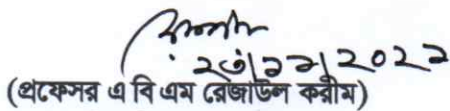 ২৩|১১|২০২১
(প্রফেসর এ বি এম রেজাউল করীম)